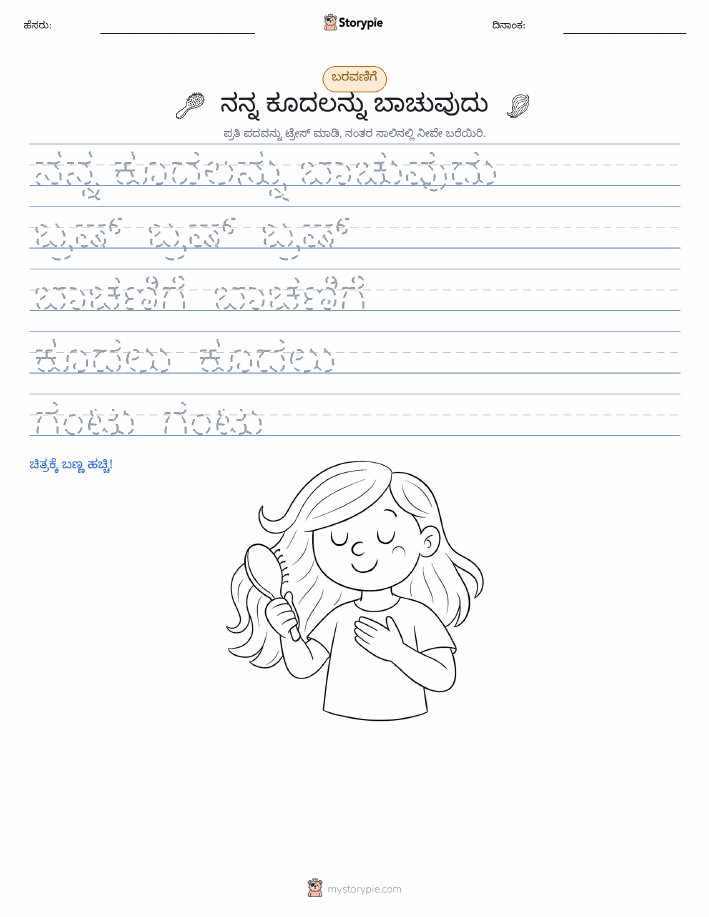 ಹೆಸರು: Storypie ದಿನಾಂಕ:
ಬರವಣಿಗೆ
ನನ್ನ ಕೂದಲನ್ನು ಬಾಚುವುದು
ಪ್ರತಿ ಪದವನ್ನು ಟ್ರೇಸ್ ಮಾಡಿ, ನಂತರ ಸಾಲಿನಲ್ಲಿ ನೀವೇ ಬರೆಯಿರಿ.
ನನ್ನ ಕೂದಲನ್ನು ಬಾಚುವುದು
ಬ್ರಷ್ ಬ್ರಷ್ ಬ್ರಷ್
ಬಾಚಣಿಗೆ ಬಾಚಣಿಗೆ
ಕೂದಲು ಕೂದಲು
ಗಂಟು ಗಂಟು
ಚಿತ್ರಕ್ಕೆ ಬಣ್ಣ ಹಚ್ಚಿ!
mystorypie.com